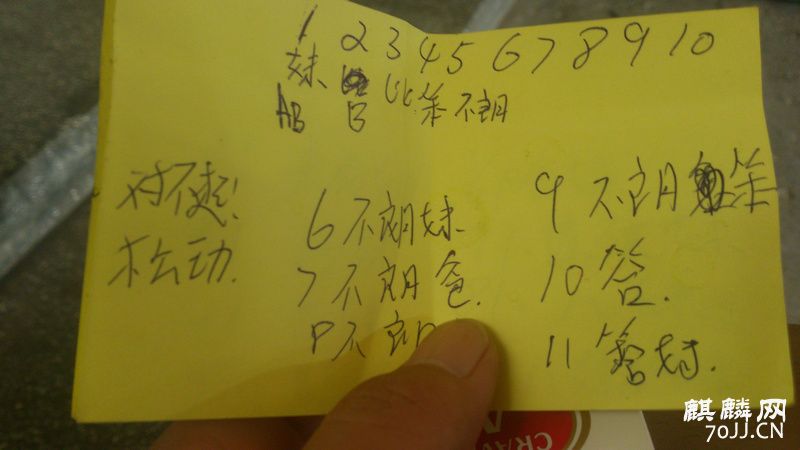 1 2 3 4 5 6 7 8 9 10
妹
AB B 笨 不朗
对不起!
松动.
6 不朗妹.
7 不朗爸.
不朗
9 不朗 笨
10 答.
11
CRA
麒麟网
70JJ.CN